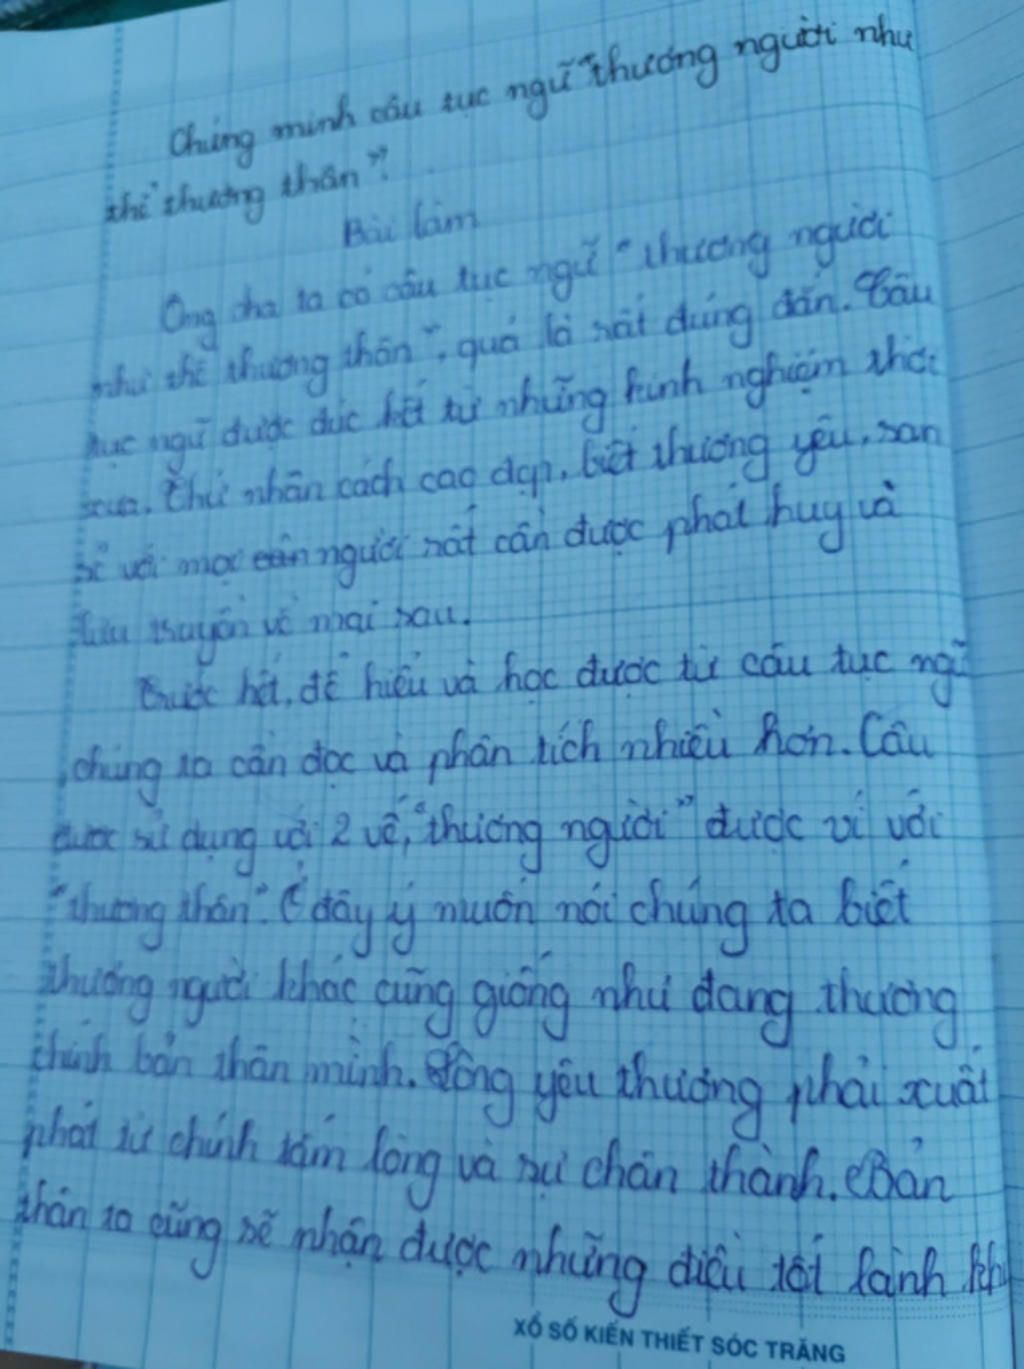 Chứng minh câu tục ngữ "thương người như
thể thương thân"?
Bài làm
Ông cha ta có câu tục ngữ "thương người
như thể thương thân", quả là rất đúng đắn. Câu
tục ngữ được đúc kết từ những kinh nghiệm thời
xưa. Thứ nhân cách cao đẹp, biết thương yêu, san
sẻ với mọi con người rất cần được phát huy và
lưu truyền về mai sau.
Trước hết, để hiểu và học được từ câu tục ngữ
chúng ta cần đọc và phân tích nhiều hơn. Câu
được sử dụng với 2 vế, "thương người" được ví với
"thương thân". Ở đây ý muốn nói chúng ta biết
thương người khác cũng giống như đang thương
chính bản thân mình. Lòng yêu thương phải xuất
phát từ chính tấm lòng và sự chân thành. Bản
thân ta cũng sẽ nhận được những điều tốt lành khi
XỔ SỐ KIẾN THIẾT SÓC TRĂNG